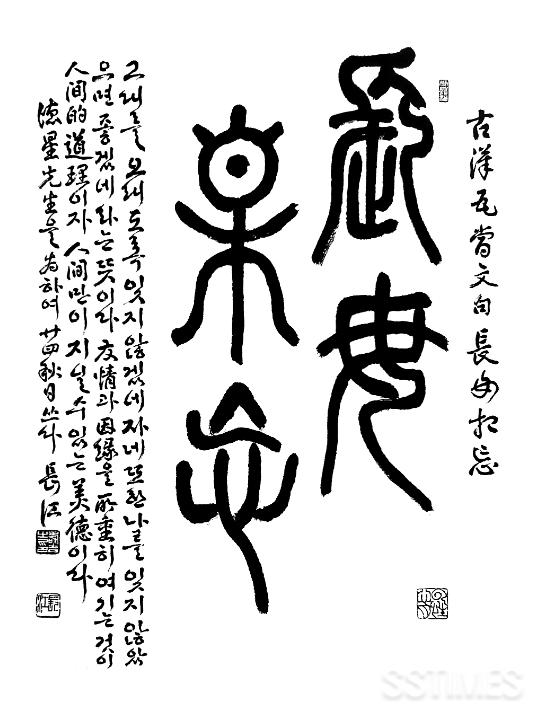 古漢瓦當文句長毋相忘
長毋
相忘
그대를 오래도록 잊지 않겠네 자네 또한 나를 잊지 않았
으면 좋겠네 라는 뜻이라 友情과 因緣을 所重히 여기는 것이
人間的 道理이자 人間만이 지닐 수 있는 美德이라
星先生을 爲하여 廿四秋日 쓰다 長江
SSTIMES